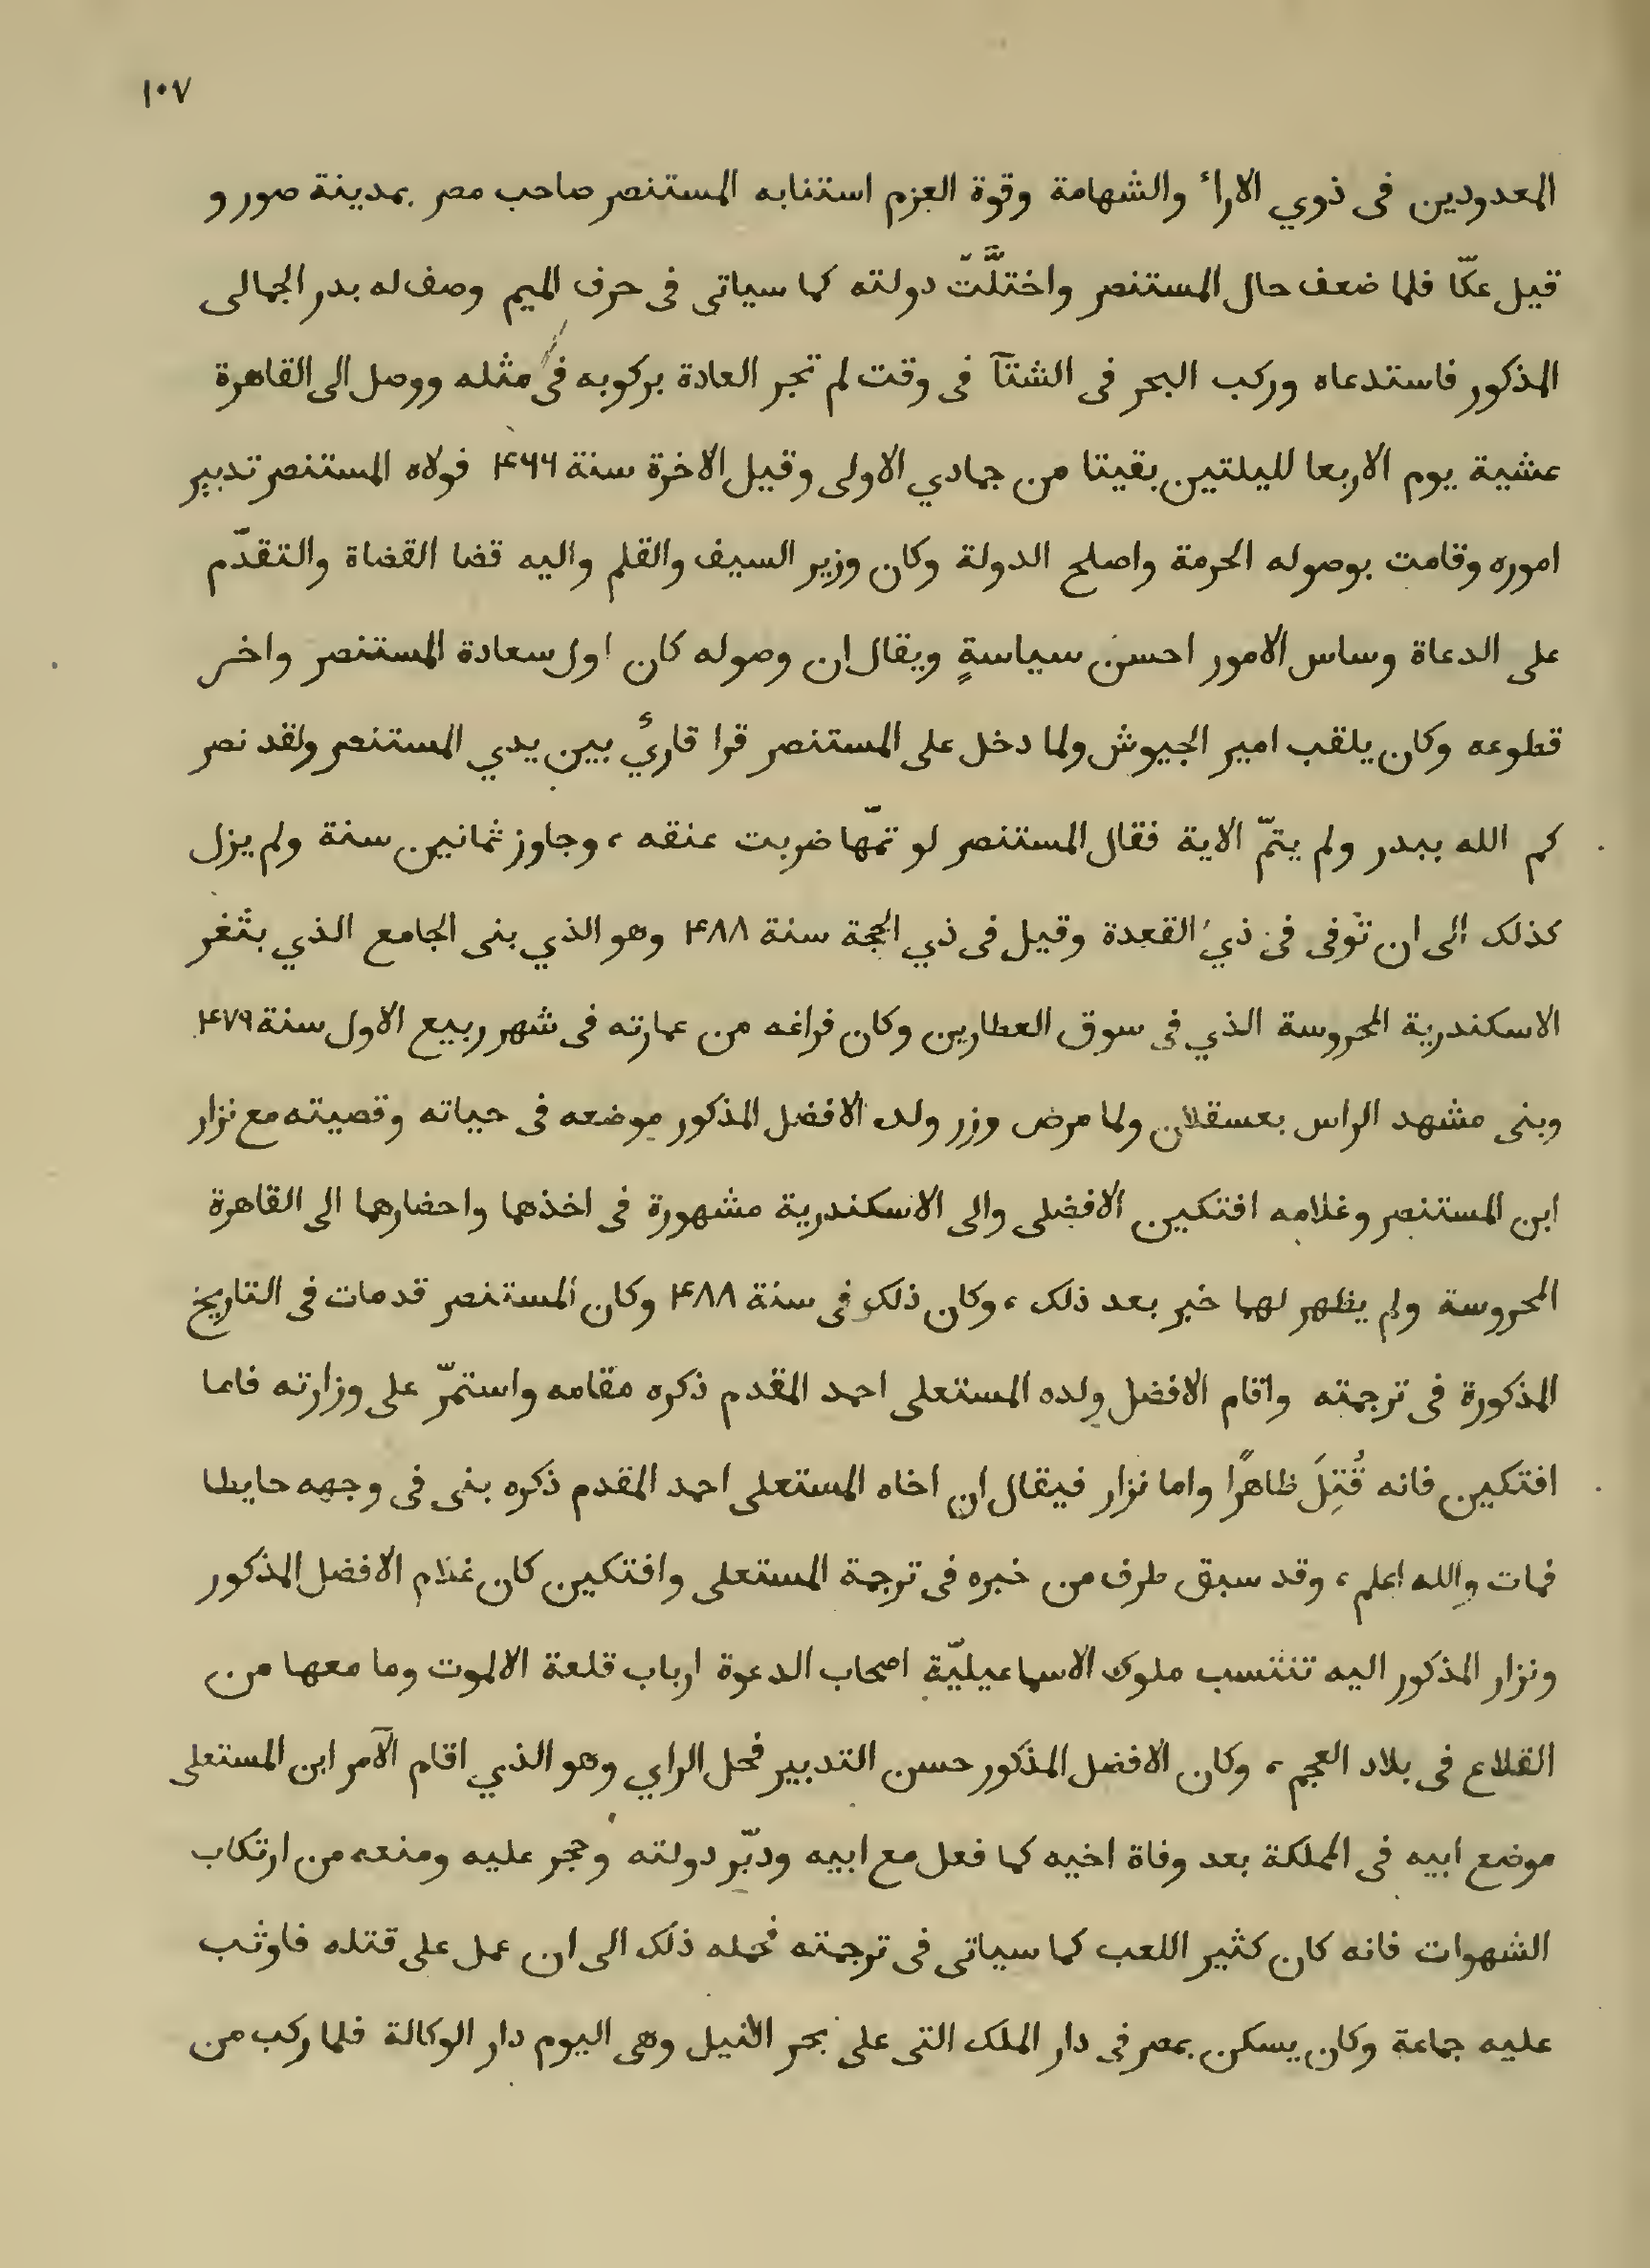 ١٠٧
المعدودين فى ذوي الاراء والشهامة وقوة العزم استنابه المستنصر صاحب مصر بمدينة صور و
قيل عكّا فلما ضعف حال المستنصر واختلَّتّ دولته كما سياتى فى حرف الميم وصف له بدر الجمالى
المذكور فاستدعاه وركب البحر فى الشتآ فى وقت لم تجر العادة بركوبه فى مثله ووصل الى القاهرة
عشية يوم الاربعا لليلتين بقيتا من جمادي الاولى وقيل الاخرة سنة ۴۶۶ فولاه المستنصر تدبير
اموره وقامت بوصوله الحرمة واصلح الدولة وكان وزير السيف والقلم واليه قضا القضاة والتقدّم
على الدعاة وساس الامور احسن سياسةٍ ويقال ان وصوله كان اول سعادة المستنصر واخر
قطوعه وكان يلقب امير الجيوش ولما دخل على المستنصر قرا قارئ بين يدي المستنصر ولقد نصر
كم الله ببدر ولم يتمّ الاية فقال المستنصر لو تمّها ضربت عنقه ، وجاوز ثمانين سنة ولم يزل
كذلك الى ان توفى فى ذي القعدة وقيل فى ذي الحجة سنة ۴۸۸ وهو الذي بنى الجامع الذي بثغر
الاسكندرية المحروسة الذي فى سوق العطارين وكان فراغه من عمارته فى شهر ربيع الاول سنة ۴۷۹
وبنى مشهد الراس بعسقلان ولما مرض وزر ولده الافضل المذكور موضعه فى حياته وقصيته مع نزار
ابن المستنصر وغلامه افتكين الافضلى والى الاسكندرية مشهورة فى اخذهما واحضارهما الى القاهرة
المحروسة ولم يظهر لهما خبر بعد ذلك ، وكان ذلك فى سنة ۴۸۸ وكان المستنصر قد مات فى التاريخ
المذكورة فى ترجمته واقام الافضل ولده المستعلى احمد المقدم ذكره مقامه واستمرّ على وزارته فاما
افتكين فانه قُتِلَ ظاهرًا واما نزار فيقال ان اخاه المستعلى احمد المقدم ذكره بنى فى وجهه حايطا
فمات والله اعلم ، وقد سبق طرف من خبره فى ترجمة المستعلى وافتكين كان غلام الافضل المذكور
ونزار المذكور اليه تنتسب ملوك الاسماعيليّة اصحاب الدعوة ارباب قلعة الالموت وما معها من
القلاع فى بلاد العجم ، وكان الافضل المذكور حسن التدبير فحل الراي وهو الذي اقام الآمر ابن المستعلى
موضع ابيه فى المملكة بعد وفاة اخيه كما فعل مع ابيه ودبّر دولته وحجر عليه ومنعه من ارتكاب
الشهوات فانه كان كثير اللعب كما سياتى فى ترجمته فحمله ذلك الى ان عمل على قتله فاوثب
عليه جماعة وكان يسكن بمصر فى دار الملك التى على بحر النيل وهى اليوم دار الوكالة فلما ركب من